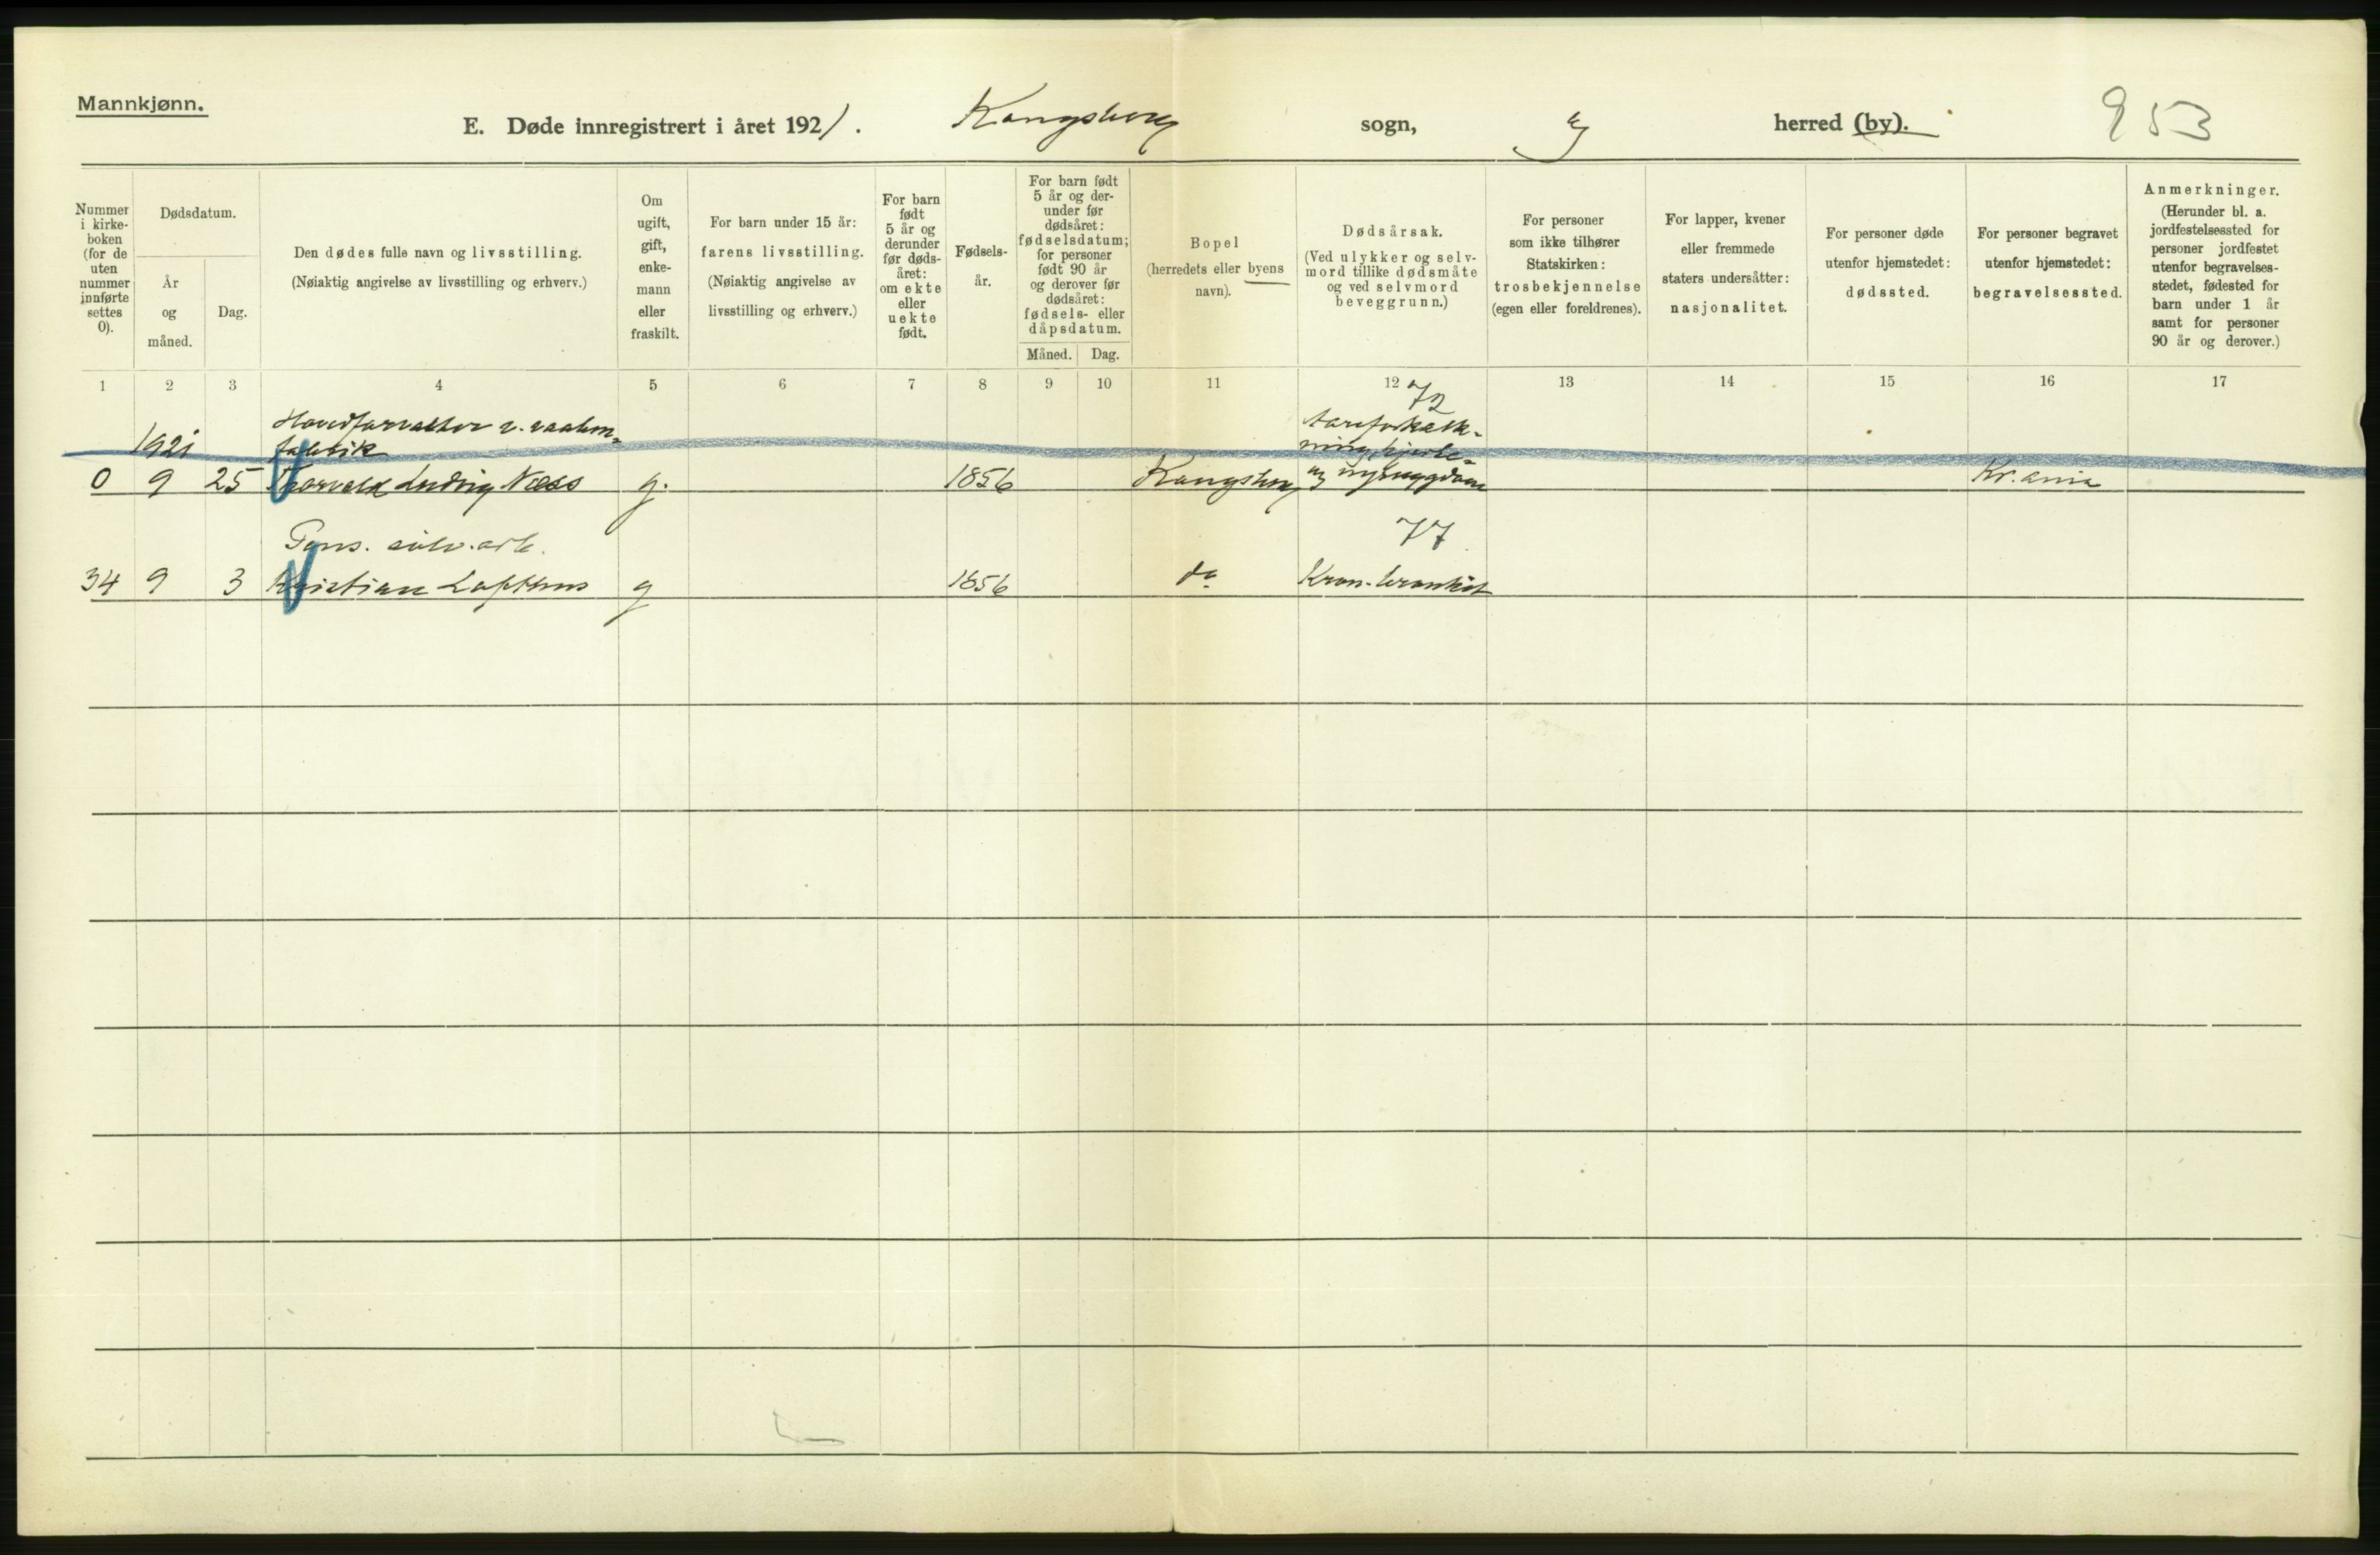 Mannkjønn.
E. Døde innregistrert i året 1921. Kongsberg sogn, herred (by). 953
Nummer i kirkeboken (for de uten nummer innførte settes 0).
Dødsdatum.
År og måned.
Dag.
Den dødes fulle navn og livsstilling.
(Nøiaktig angivelse av livsstilling og erhverv.)
Om ugift, gift, enkemann eller fraskilt.
For barn under 15 år:
farens livsstilling.
(Nøiaktig angivelse av livsstilling og erhverv.)
For barn født 5 år og derunder før dødsåret: om ekte eller uekte født.
Fødselsår.
For barn født 5 år og derunder før dødsåret: fødselsdatum; for personer født 90 år og derover før dødsåret: fødsels- eller dåpsdatum.
Måned. Dag.
Bopel
(herredets eller byens navn).
Dødsårsak.
(Ved ulykker og selvmord tillike dødsmåte og ved selvmord beveggrunn.)
For personer som ikke tilhører Statskirken:
trosbekjennelse
(egen eller foreldrenes).
For lapper, kvener eller fremmede staters undersåtter:
nasjonalitet.
For personer døde utenfor hjemstedet:
dødssted.
For personer begravet utenfor hjemstedet:
begravelsessted.
Anmerkninger.
(Herunder bl. a. jordfestelsessted for personer jordfestet utenfor begravelsesstedet, fødested for barn under 1 år samt for personer 90 år og derover.)
1 2 3 4 5 6 7 8 9 10 11 12 13 14 15 16 17
72
Hovedforvalter v. vaaben-
Aareforkalk-
1921 fabrik
ning, hjerte-
0 9 25 Thorvald Ludvig Næss g. 1856 Kongsberg og nyresygdom Kr.ania
77
Pens. sølv.arb.
34 9 3 Kristian g 1856 do Kron. bronkit